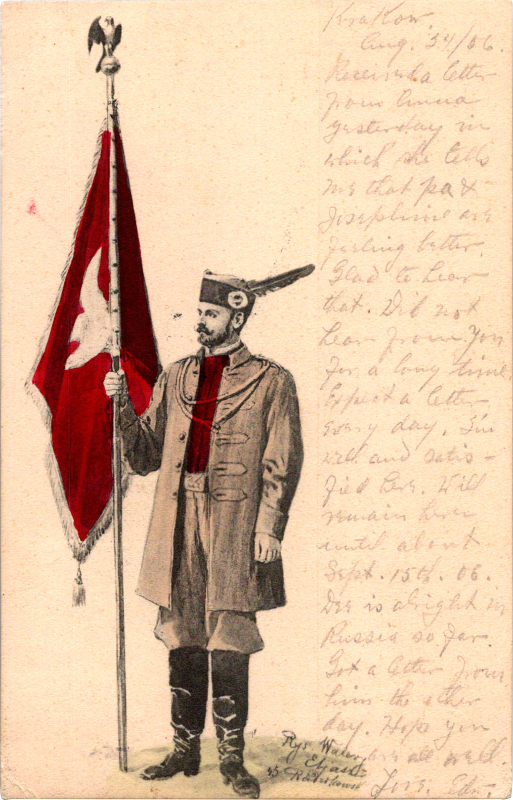 Krakow.
Aug. 24/06.
Received a letter
from Anna
yesterday in
which she tells
me that pa &
Josephine are
feeling better.
Glad to hear
that. Did not
hear from you
for a long time.
Expect a letter
every day. I'm
well and satis-
fied here. Will
remain here
until about
Sept. 15th. 06.
is alright in
Russia so far.
Got a letter from
him the other
day. Hope you
are all well.
Love. Edw.
Rys Walery
Eljasz